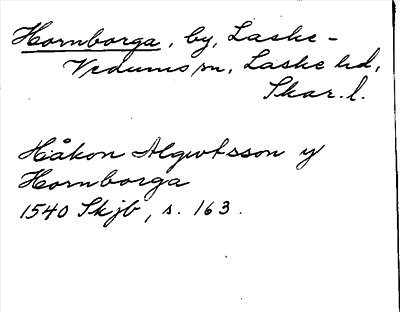 Hornborga, by, Laske-
Vedums sn, Laske hd,
Skar. l.
Håkon Algutsson y
Hornborga
1540 Skjb, s. 163.